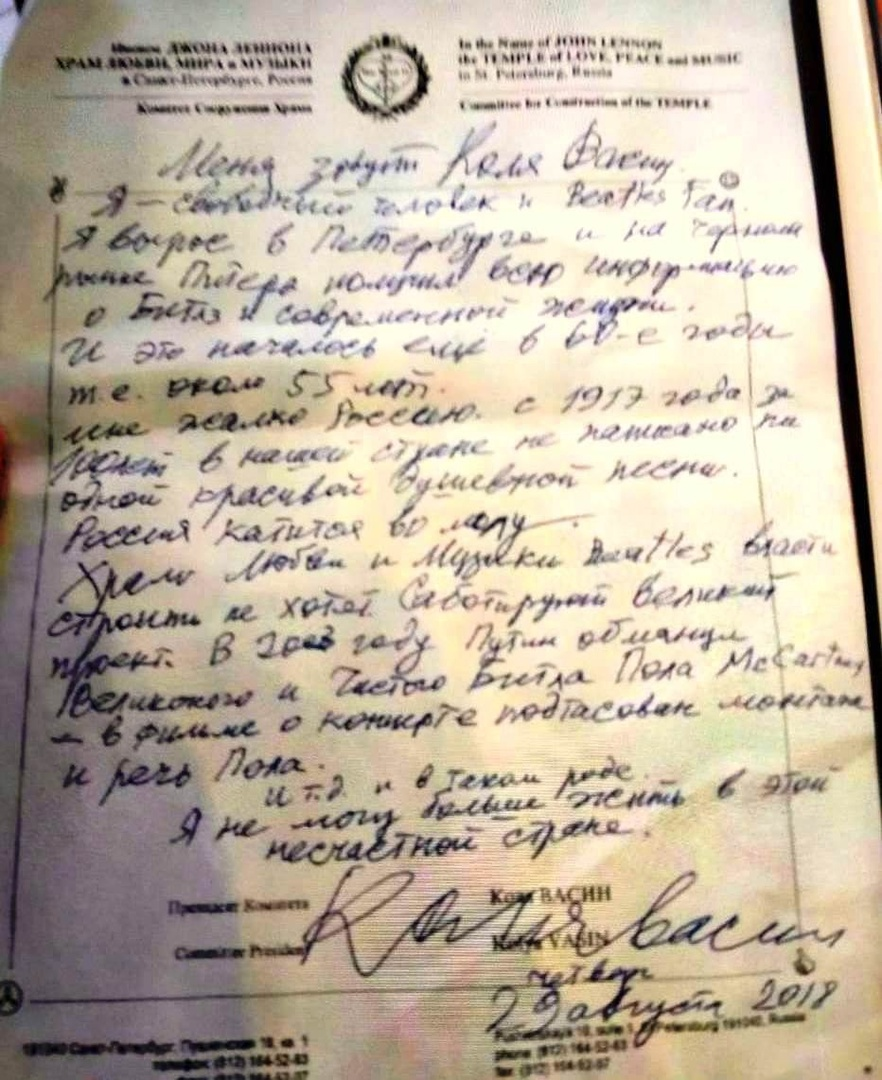 Именем ДЖОНА ЛЕННОНА
ХРАМ ЛЮБВИ, МИРА и МУЗЫКИ
в Санкт-Петербурге, Россия
Комитет Сооружения Храма
In the Name of JOHN LENNON
the TEMPLE of LOVE, PEACE and MUSIC
in St. Petersburg, Russia
Committee for Construction of the TEMPLE
Меня зовут Коля Васин.
Я – свободный человек и Beatles Fan.
Я вырос в Петербурге и на чёрном
рынке Питера получил всю информацию
о Битлз и современной жизни.
И это началось ещё в 60-е годы
т.е. около 55 лет.
мне жалко Россию. с 1917 года за
100 лет в нашей стране не написано ни
одной красивой душевной песни.
Россия катится во мглу.
Храм Любви и Музыки Beatles власти
строить не хотят. Саботируют великий
проект. В 2003 году Путин обманул
Великого и Битла Пола McCartney
– в фильме о концерте подтасован монтаж
и речь Пола.
и т.д. и в таком роде.
Я не могу больше жить в этой
несчастной стране.
Президент Комитета
Коля ВАСИН
Committee President
Kolya VASIN
Коля Васин
четверг
29 августа 2018
191040 Санкт-Петербург, Пушкинская 10, кв. 1
телефон: (812) 164-52-63
(812) 164-52-07
Petersburg 191040, Russia
phone: (812) 164-52-63
fax: (812) 164-52-07